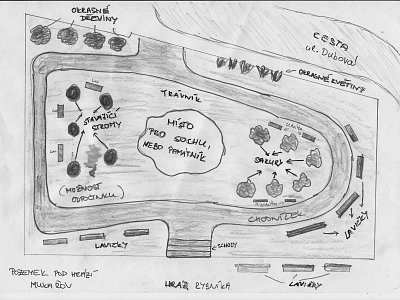 OKRASNÉ
DŘEVINY
CESTA
ul. Dubová
OKRASNÉ KVĚTINY
TRÁVNÍK
STÁVAJÍCÍ
STROMY
MÍSTO
PRO SOCHU,
NEBO PAMÁTNÍK
SAKURY
(MOŽNOST
ODPOČINKU)
CHODNÍČEK
LAVIČKY
LAVIČKY
SCHODY
LAVIČKY
POZEMEK POD HRÁZÍ
HRÁZ RYBNÍKA